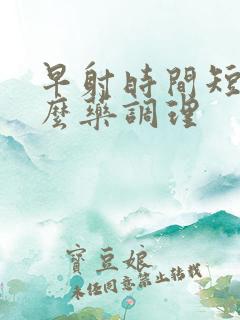 早射時間短
麼藥調理
寶豆娘
未经同意禁止转载